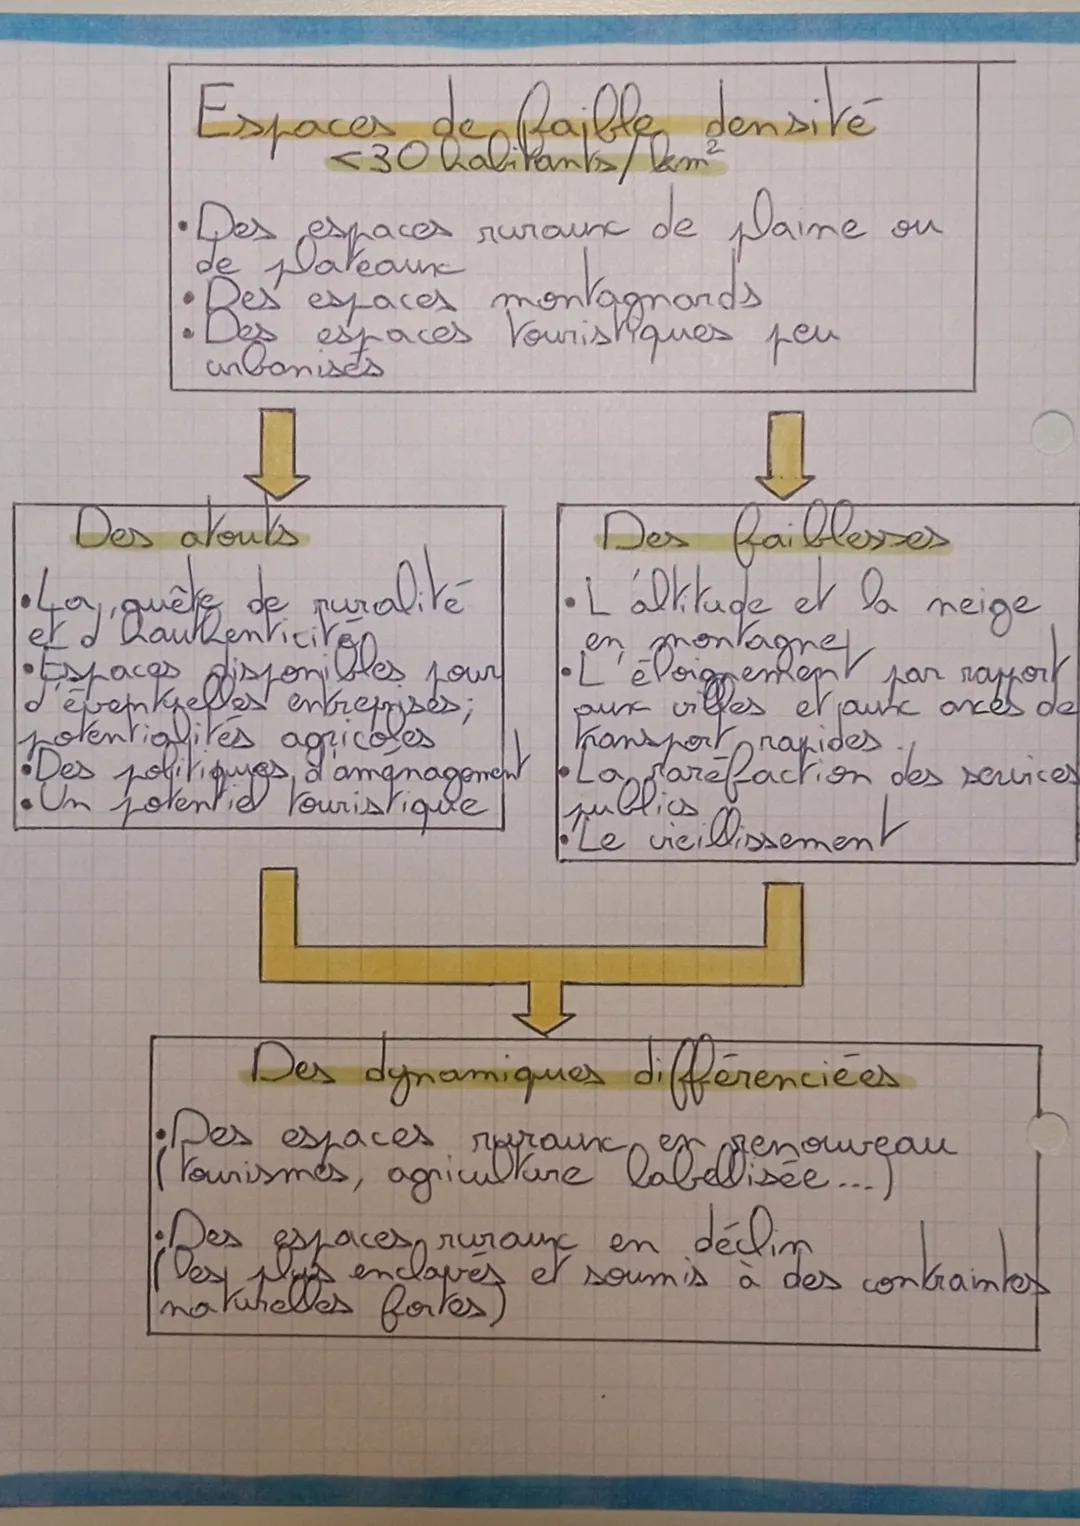 Espaces de faible densité
<30 habitants/km²
• Des espaces ruraux de plaine ou
de plateaux
• Des espaces montagnards
• Des espaces touristiques peu
urbanisés
Des atouts
• La quête de ruralité
et d'hauthenticité
• Espaces disponibles pour
d'éventuelles entreprises;
potentialités agricoles
• Des politiques d'aménagement
• Un potentiel touristique
Des faiblesses
• L'altitude et la neige
en montagne
• L'éloignement par rapport
aux villes et aux axes de
transport rapides.
• La raréfaction des services
publics
• Le vieillissement
Des dynamiques différenciées
• Des espaces ruraux en renouveau
(tourismes, agriculture labellisée...)
• Des espaces ruraux en déclin
(les plus enclavés et soumis à des contraintes
naturelles fortes)